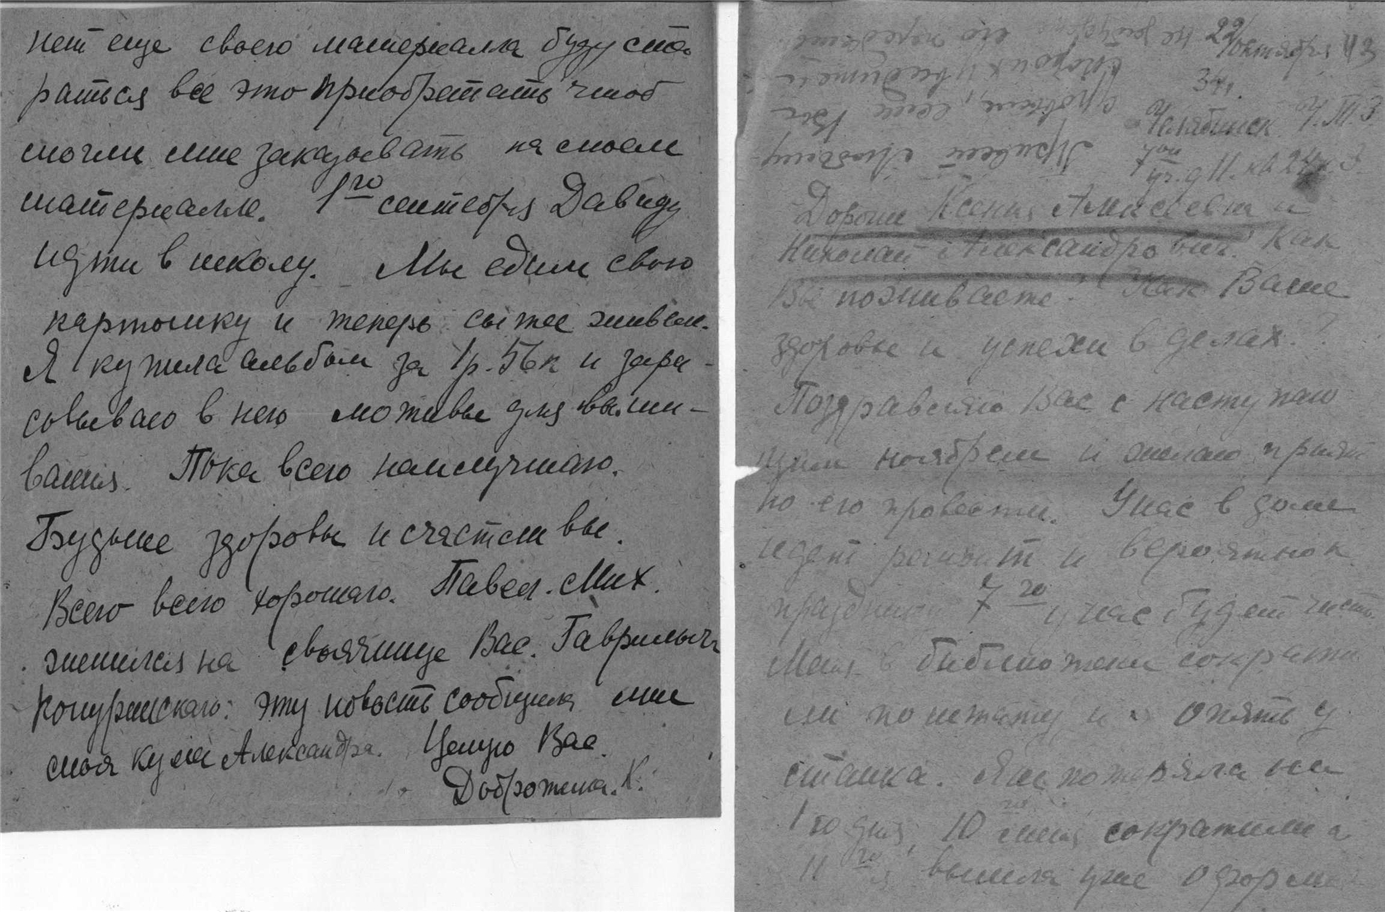 нет еще своего материалла буду ста
раться все это приобретать чтоб
могли мне заказывать на моем
материалле. 1го сентебря Давиду
идти в школу. Мы едим свою
картошку и теперь сытее живем.
Я купила альбом за 1р. 56к и зари-
совываю в него мотивы для выши-
вания. Пока всего наилучшаго.
Будьте здоровы и счастливы.
Всего всего хорошаго. Павел. Мих.
женился на свояченице Вас. Гаврилыча
эту новость сообщила мне
моя кума Александра. Целую Вас.
К.
22/октября
Челябинск Ч.Т.З.
7ой уч. д 11. кв 24
Дорогие Ксения Алексеевна и
Николай Александрович! Как
Вы поживаете? Как Ваше
здоровье и успехи в делах?
Поздравляю Вас с наступаю
щим ноябрем и желаю прият
но его провести. У нас в доме
идет ремонт и вероятно к
празднику 7го у нас будет чисто.
Меня в библиотеки сократи
ли по штату и я опять у
станка. Я не потеряла ни
1го дня, 10го меня сократили а
11го я вышла уже